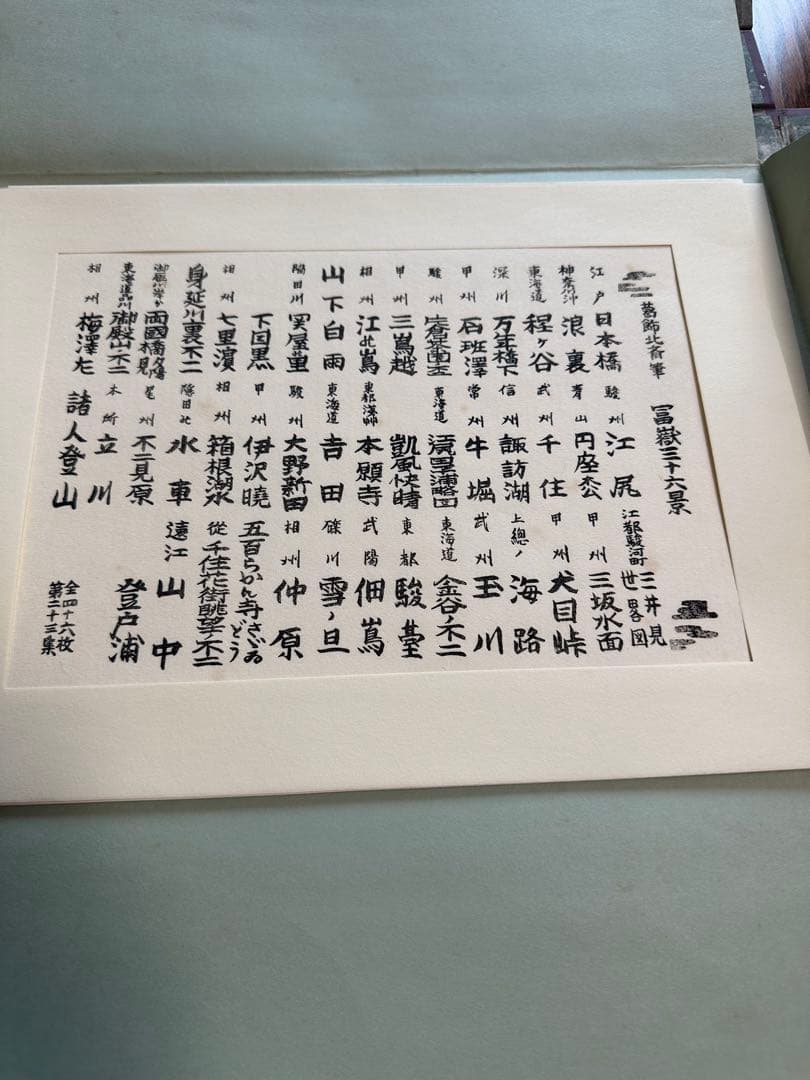 葛飾北斎筆 冨嶽三十六景
江戸 日本橋 駿州 江尻 江都駿河町 三井見世畧図
神奈川沖 浪裏 青山 円座枩 甲州 三坂水面
東海道 程ヶ谷 武州 千住 甲州 犬目峠
深川 万年橋下 信州 諏訪湖 上總ノ 海路
甲州 石班澤 常州 牛堀 武州 玉川
駿州 東海道 浦略図 東海道 金谷ノ不二
甲州 三嶌越 凱風快晴 東都 駿臺
相州 江の嶌 東都浅艸 本願寺 武陽 佃嶌
山下白雨 東海道 吉田 礫川 雪ノ旦
隅田川 関屋の里 駿州 大野新田 相州 仲原
下目黒 甲州 伊沢暁 五百らかん寺さゞゐどう
相州 七里濱 相州 箱根湖水 従千住花街眺望ノ不二
身延川裏不二 隠田の 水車 遠江 山中
御厩川岸ゟ 両國橋夕陽見 尾州 不二見原 登戸浦
東海道品川 御殿山ノ不二 本所 立川
相州 梅澤左 諸人登山
全四十六枚
第二十三集